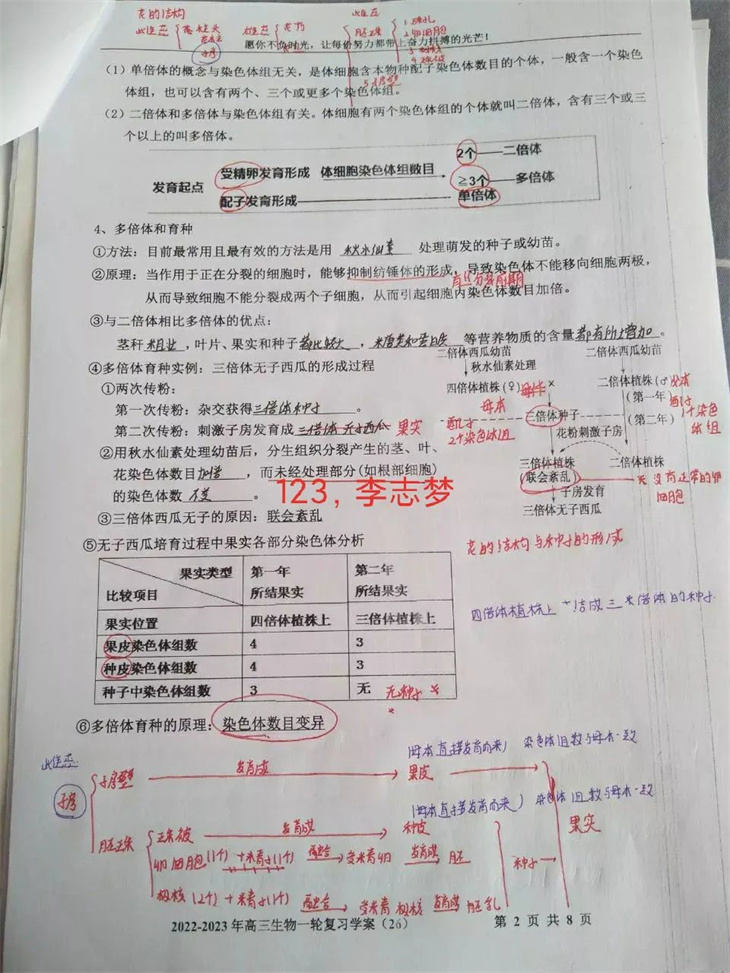 花的结构
雌蕊 柱头 花柱 子房
雄蕊 花药
胚珠 1. 珠孔
2. 卵细胞
愿你不负时光，让每份努力都带上奋力拼搏的光芒！
（1）单倍体的概念与染色体组无关，是体细胞含本物种配子染色体数目的个体，一般含一个染色
体组，也可以含有两个、三个或更多个染色体组。
（2）二倍体和多倍体与染色体组有关。体细胞有两个染色体组的个体就叫二倍体，含有三个或三
个以上的叫多倍体。
2个——二倍体
受精卵发育形成 体细胞染色体组数目
发育起点
≥3个——多倍体
配子发育形成 单倍体
4、多倍体和育种
①方法：目前最常用且最有效的方法是用 秋水仙素 处理萌发的种子或幼苗。
②原理：当作用于正在分裂的细胞时，能够抑制纺锤体的形成，导致染色体不能移向细胞两极，
有丝分裂前期
从而导致细胞不能分裂成两个子细胞，从而引起细胞内染色体数目加倍。
③与二倍体相比多倍体的优点：
茎秆 粗壮 ，叶片、果实和种子 都比较大 ， 糖类和蛋白质 等营养物质的含量 都有所增加 。
④多倍体育种实例：三倍体无子西瓜的形成过程
①两次传粉：
第一次传粉：杂交获得 三倍体种子 。
第二次传粉：刺激子房发育成 三倍体无子西瓜 果实
②用秋水仙素处理幼苗后，分生组织分裂产生的茎、叶、
花染色体数目 加倍 ，而未经处理部分(如根部细胞)
的染色体数 不变 。
123，李志梦
③三倍体西瓜无子的原因：联会紊乱
二倍体西瓜幼苗 二倍体西瓜幼苗
秋水仙素处理
四倍体植株（♀） 母本 × 二倍体植株（♂） 父本
（第一年） 配子
母本
配子 三倍体种子 （第二年） 1个染色体组
2个染色体组 花粉刺激子房
三倍体植株 二倍体植株
（联会紊乱） 无 没有正常的卵细胞
子房发育
三倍体无子西瓜
⑤无子西瓜培育过程中果实各部分染色体分析
花的结构与种子的形成
果实类型 第一年 第二年
比较项目 所结果实 所结果实
果实位置 四倍体植株上 三倍体植株上
果皮染色体组数 4 3
种皮染色体组数 4 3
种子中染色体组数 3 无 无种子
四倍体植株上 结成三倍体的种子
⑥多倍体育种的原理：染色体数目变异
雌蕊
子房
子房壁 发育成 果皮 （母本直接发育而来） 染色体组数与母本一致
胚珠 珠被 发育成 种皮 （母本直接发育而来） 染色体组数与母本一致
果实
卵细胞(1个) + 精子(1个) 融合 受精卵 发育成 胚 种子
极核(2个) + 精子(1个) 融合 受精极核 发育成 胚乳
2022-2023 年高三生物一轮复习学案（26） 第 2 页 共 8 页